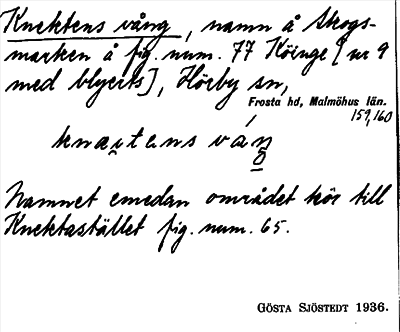 Knektens vång, namn å Skogs-
marken å fig. num. 77 Köinge [nr 9
med blyerts], Hörby sn,
Frosta hd, Malmöhus län.
159, 160
Namnet emedan området hör till
Knektastället fig. num. 65.
GÖSTA SJÖSTEDT 1936.